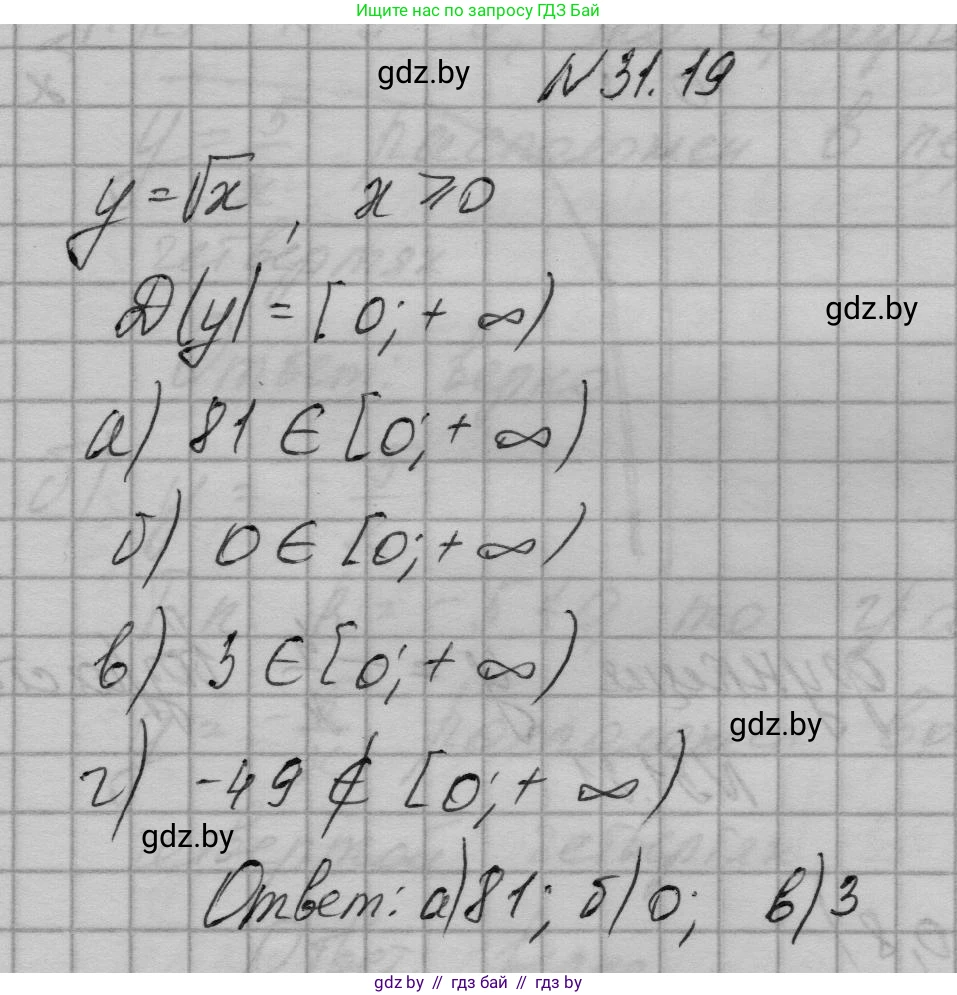 Ищите нас по запросу ГДЗ Бай
gdz.by
N 31.19
y = √x, x ⩾ 0
D(y) = [0; + ∞)
gdz.by
а) 81 ∈ [0; + ∞)
б) 0 ∈ [0; + ∞)
в) 3 ∈ [0; + ∞)
gdz.by
г) -49 ∉ [0; + ∞)
gdz.by
Ответ: а) 81; б) 0; в) 3
gdz.by // гдз бай // gdz.by